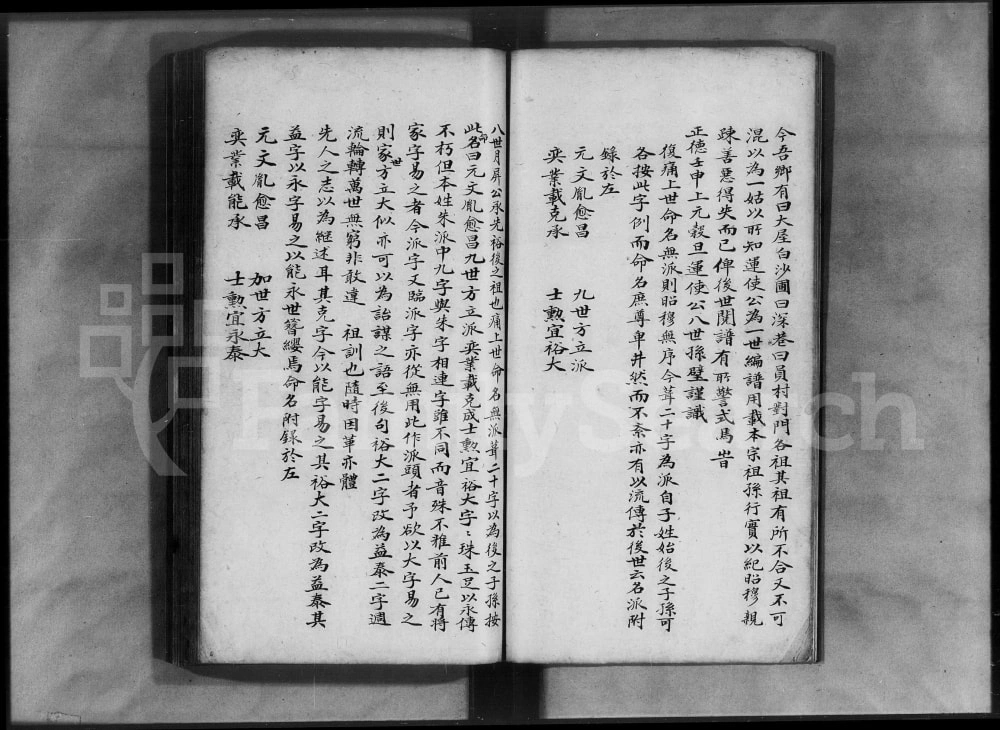 今吾鄉有曰大屋白沙圃曰深巷曰員村對門各祖其祖有所不合又不可
混以為一姑以所知運使公為一世編譜用載本宗祖孫行實以紀昭穆親
踈善惡得失而已俾後世閱譜有所警式焉旹
正德壬申上元穀旦運使公八世孫壁謹識
復痛上世命名無派則昭穆無序今葺二十字為派自子姓始後之子孫可
各按此字例而命名庶尊卑井然而不紊亦有以流傳於後世云名派附
錄於左
元文胤愈昌 九世方立派
奕業載克承 士勲宜裕大
八世月屏公承先裕後之祖也痛上世命名無派葺二十字以為後之子孫按
此命名曰元文胤愈昌九世方立派奕業載克成士勲宜裕大字〻珠玉足以永傳
不朽但本姓朱派中九字與朱字相連字雖不同而音殊不雅前人已有將
家字易之者今派字又臨派字亦從無用此作派頭者予欲以大字易之
則家世方立大似亦可以為詒謀之語至後句裕大二字改為益泰二字週
流輪轉萬世無窮非敢違 祖訓也隨時因革亦體
先人之志以為継述耳其克字今以能字易之其裕大二字改為益泰其
益字以永字易之以能永世簪纓焉命名附錄於左
元文胤愈昌 加世方立大
奕業載能承 士勲宜永泰
FamilySearch